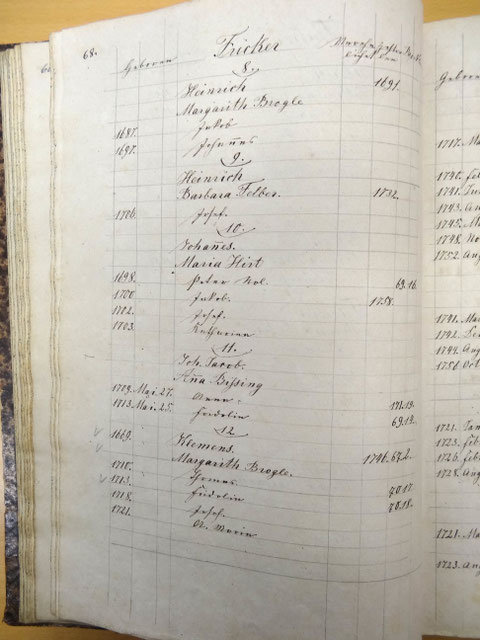 68.
Fricker
Geboren
8.
Heinrich 1691.
Margarith Brogle
1687. Jakob
1697. Johannes
9.
Heinrich
Barbara Felber. 1732.
1706. Josef.
10.
Johannes.
Maria Hirt
1698. Peter Nol. 69.16.
1700. Jakob. 1758.
1702. Josef.
1703. Katharina
11.
Joh. Jacob.
Anna Bissing
1709. Mai. 27. Anna.
1713. Mai. 25. Fridolin 69.19.
12
1669. Klemens.
Margarith Brogle. 1746.
1710.
1713. Fridolin 70.17.
1718. Josef. 70.18.
1721. A. Maria
Geboren
1717.
1740.
1741.
1743.
1745.
1748.
1752. Aug
1741.
1742.
1744. Aug
1751. Oct
1721.
1723. Feb
1726. Feb
1728. Aug
1721.
1723. Aug